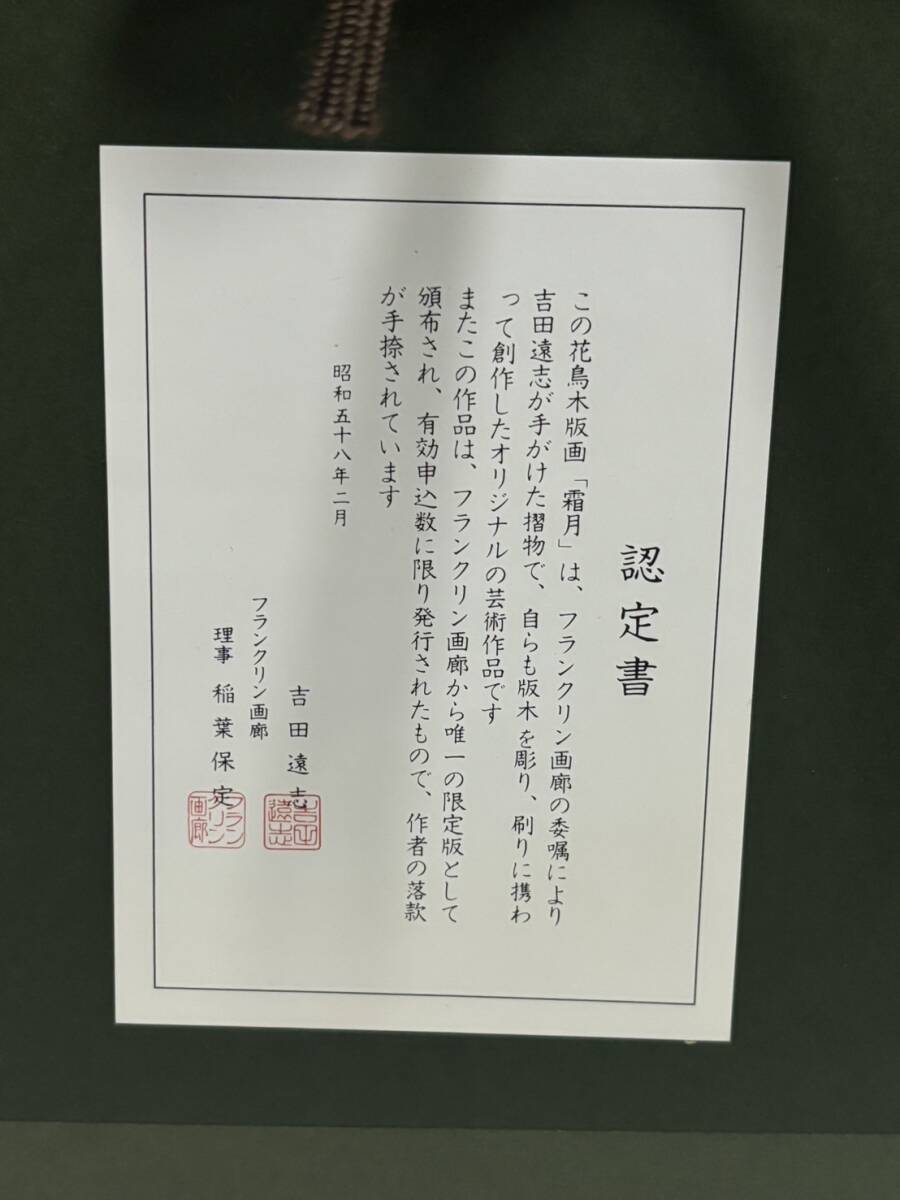 認定書
この花鳥木版画「霜月」は、フランクリン画廊の委嘱により
吉田遠志が手がけた摺物で、自らも版木を彫り、刷りに携わ
って創作したオリジナルの芸術作品です
またこの作品は、フランクリン画廊から唯一の限定版として
頒布され、有効申込数に限り発行されたもので、作者の落款
が手捺されています
昭和五十八年二月
吉田遠志
吉田遠志
フランクリン画廊
理事 稲葉保定
フランクリン画廊